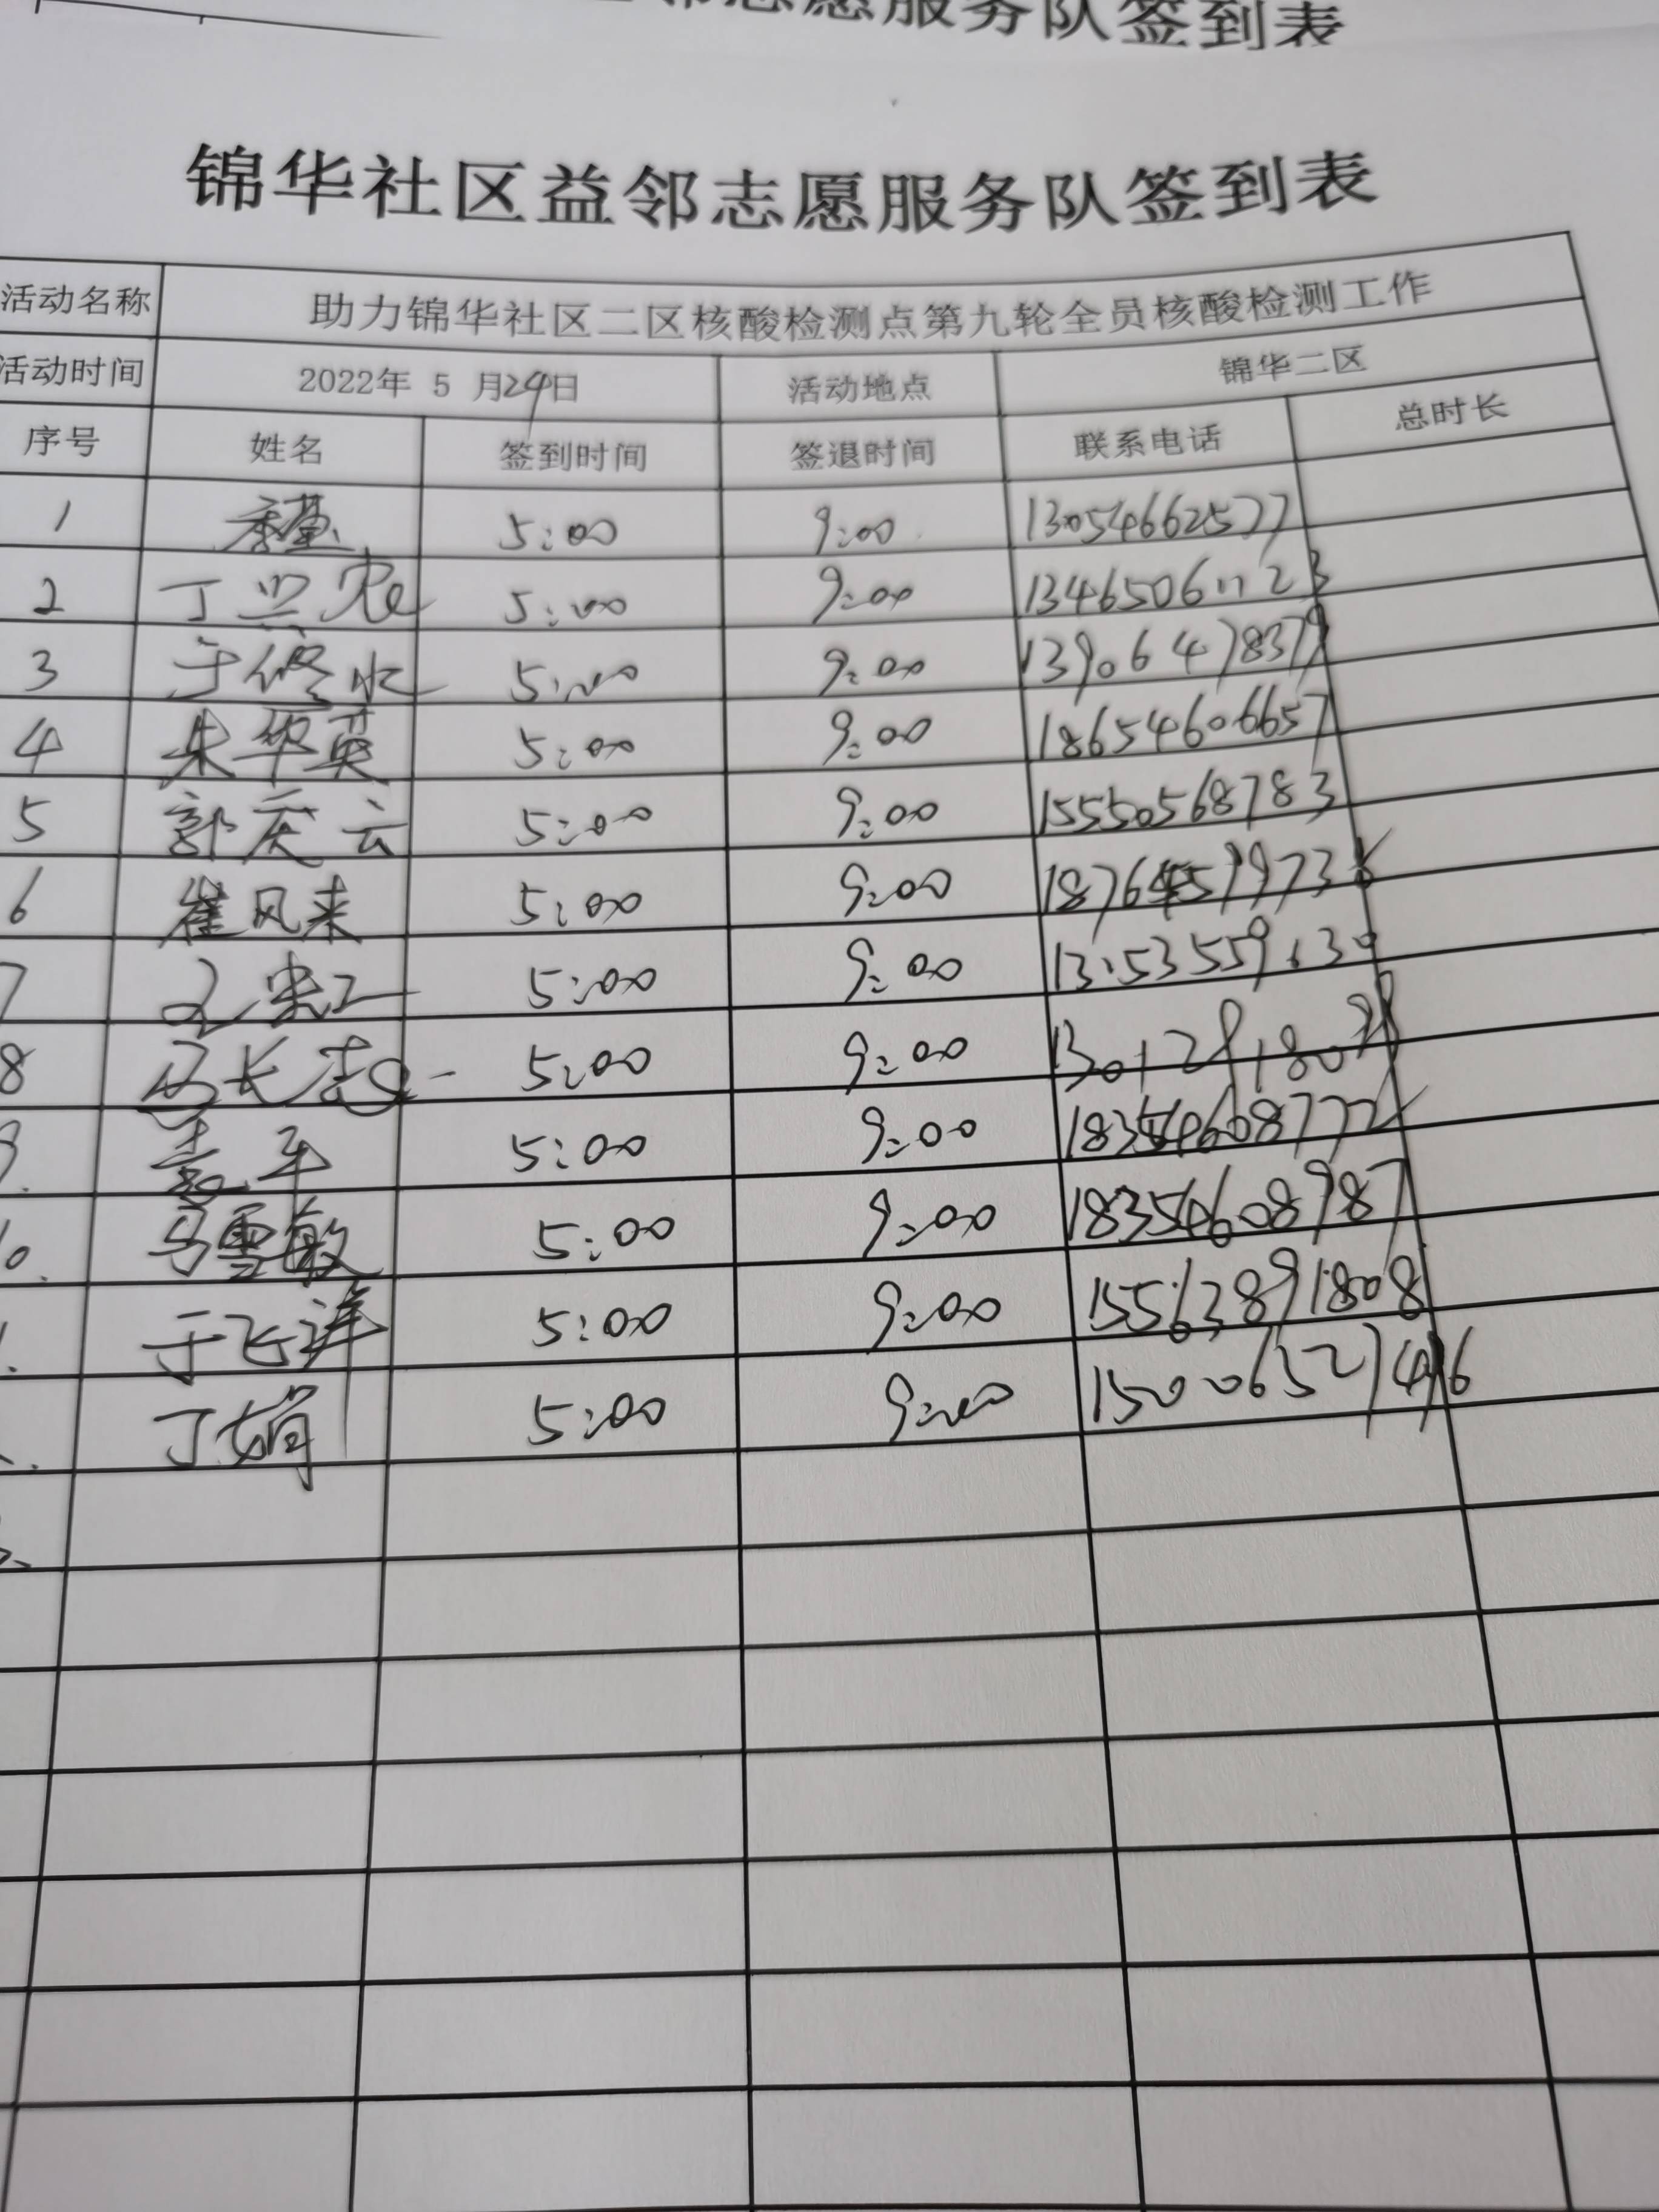 志愿服务队签到表
锦华社区益邻志愿服务队签到表
活动名称 助力锦华社区二区核酸检测点第九轮全员核酸检测工作
活动时间 2022年 5 月24日 活动地点 锦华二区
序号 姓名 签到时间 签退时间 联系电话 总时长
1 5:00 9:00 13054662577
2 丁兴农 5:00 9:00 13465061123
3 于修水 5:00 9:00 13906478379
4 朱华英 5:00 9:00 18654606657
5 郭庆云 5:00 9:00 15550568783
6 崔风来 5:00 9:00
7 5:00 9:00
8 马长志 5:00 9:00
9. 5:00 9:00 18354608772
10. 马雪敏 5:00 9:00 18354608987
1. 于飞洋 5:00 9:00 15563891808
丁娟 5:00 9:00